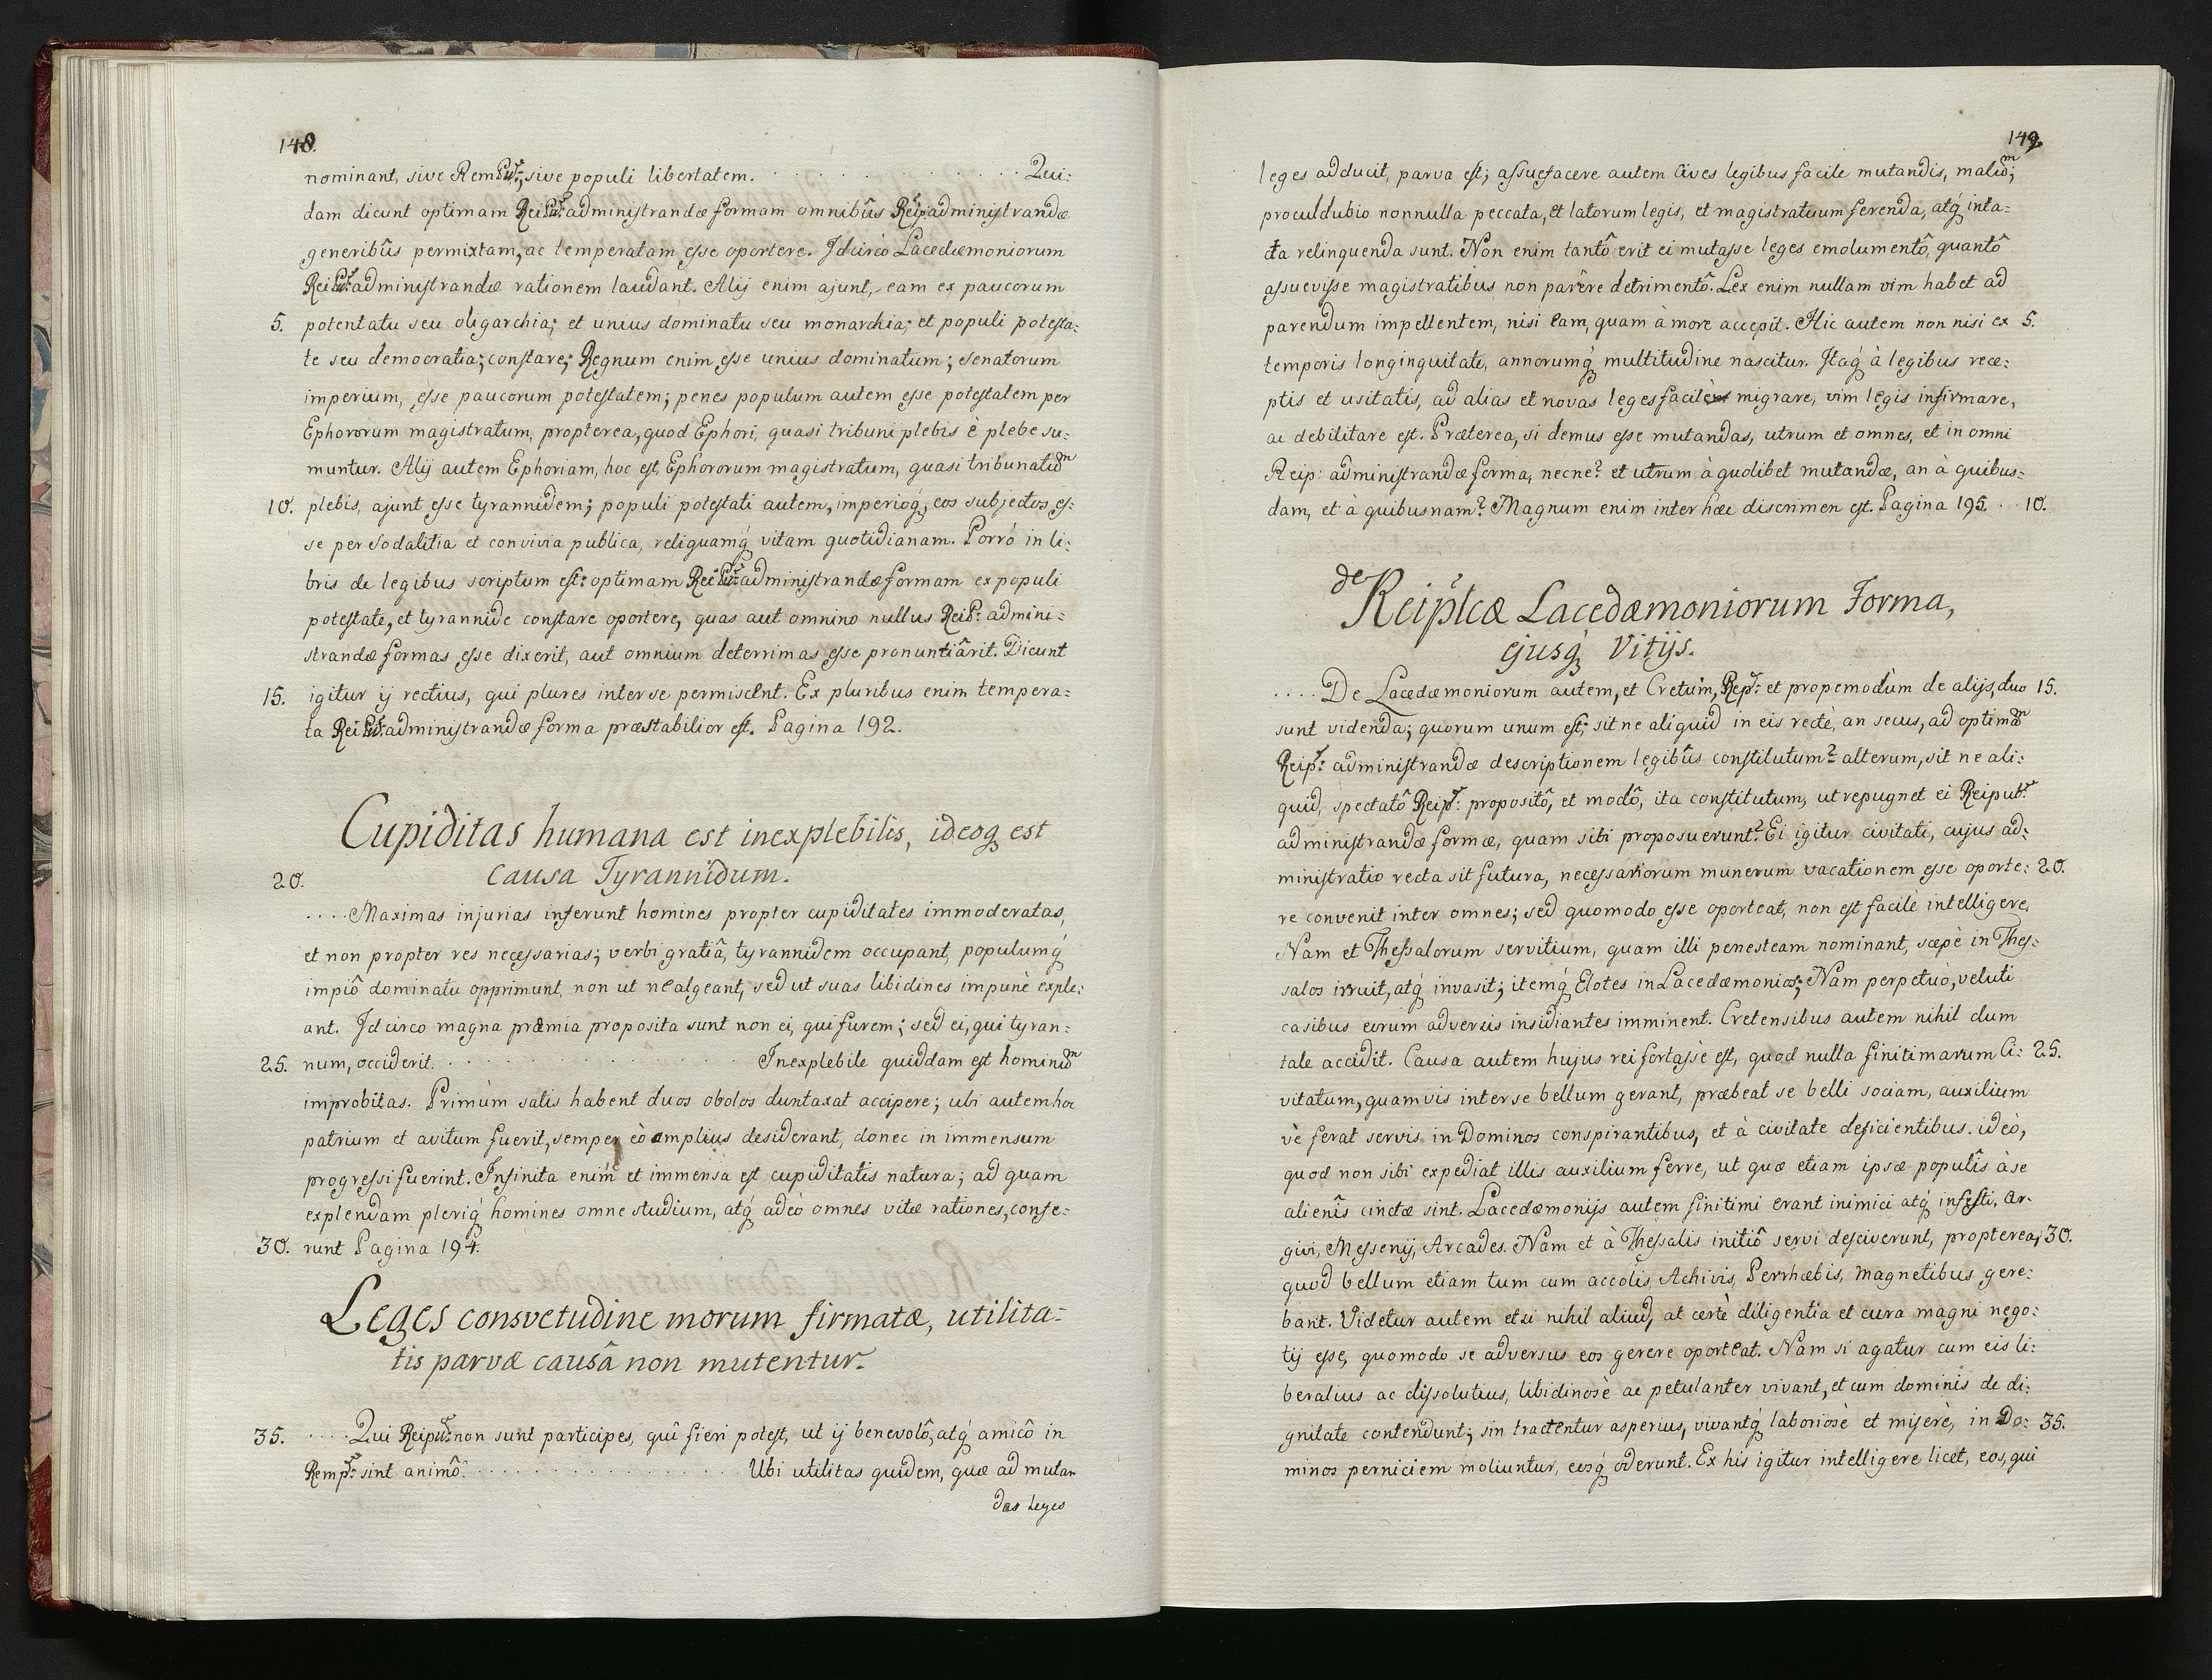 148.
nominant, sive Remp: sive populi libertatem. . . . . . . . . . . Qui:
dam dicunt optimam Reip: administrandæ formam omnibûs Reip: administrandæ
generibûs permixtam, ac temperatam esse oportere. Idcircò Lacedæmoniorum
Reip: administrandæ rationem laudant. Alij enim ajunt, eam ex paucorum
5. potentatu seu oligarchia; et unius dominatu seu monarchia; et populi potesta:
te seu democratia; constare; Regnum enim esse unius dominatum; senatorum
imperium, esse paucorum potestatem; penes populum autem esse potestatem per
Ephororum magistratum, propterea, quod Ephori, quasi tribuni plebis è plebe su:
muntur. Alij autem Ephoriam, hoc est, Ephororum magistratum, quasi tribunatum
10. plebis, ajunt esse tyrannidem; populi potestati autem, imperioq́, eos subjectos es:
se per sodalitia et convivia publica, reliquamq́ vitam quotidianam. Porrò in li:
bris de legibus scriptum est: optimam Reip: administrandæ formam ex populi
potestate, et tyrannide constare oportere, quas aut omnino nullus Reip: admini:
strandæ formas esse dixerit, aut omnium deterrimas esse pronuntiârit. Dicunt
15. igitur ij rectius, qui plures inter se permiscent. Ex pluribus enim tempera:
ta Reip: administrandæ forma præstabilior est. Pagina 192.
Cupiditas humana est inexplebilis, ideoq́ est
20. causa Tyrannidum.
. . . . Maximas injurias inferunt homines propter cupiditates immoderatas,
et non propter res necessarias; verbi gratiâ, tyrannidem occupant, populumq́
impiô dominatu opprimunt, non ut ne algeant, sed ut suas libidines impunè exple:
ant. Idcirco magna præmia proposita sunt non ei, qui furem; sed ei, qui tyran:
25. num, occiderit. . . . . . . . . . . . Inexplebile quiddam est hominum
improbitas. Primùm satis habent duos obolos duntaxat accipere; ubi autem hoc
patrium et avitum fuerit, semper eò amplius desiderant, donec in immensum
progressi fuerint. Infinita enim et immensa est cupiditatis natura; ad quam
explendam pleriq́ homines omne studium, atq́ adeò omnes vitæ rationes, confe:
30. runt Pagina 194.
Leges consvetudine morum firmatæ, utilita:
tis parvæ causâ non mutentur.
35. . . . . Qui Reip: non sunt participes, quî fieri potest, ut ij benevolô, atq́ amicô in
Remp: sint animô. . . . . . . . . . . . Ubi utilitas quidem, quæ ad mutan
das leges
149.
leges adducit, parva est; assuefacere autem Cives legibus facile mutandis, malum;
proculdubio nonnulla peccata, et latorum legis, et magistratuum ferenda, atq́ inta:
cta relinquenda sunt. Non enim tantô erit ei mutasse leges emolumentô, quantô
assuevisse magistratibus non parêre detrimentô. Lex enim nullam vim habet ad
parendum impellentem, nisi eam, quam à more accepit. Hic autem non nisi ex 5.
temporis longinquitate, annorumq́ multitudine nascitur. Itaq́ à legibus rece:
ptis et usitatis, ad alias et novas leges facilè migrare, vim legis infirmare,
ac debilitare est. Præterea, si demus esse mutandas, utrum et omnes, et in omni
Reip: administrandæ forma, necne? et utrum à quolibet mutandæ, an à quibus:
dam, et à quibusnam? Magnum enim inter hæc discrimen est. Pagina 195. . . 10.
de Reiplcæ Lacedæmoniorum Forma,
ejusq́ Vitijs.
. . . . De Lacedæmoniorum autem, et Cretum, Rep: et propemodùm de alijs, duo 15.
sunt videnda; quorum unum est, sit ne aliquid in eis rectè, an secus, ad optimam
Reip: administrandæ descriptionem legibûs constitutum? alterum, sit ne ali:
quid, spectatô Reip: propositô, et modô, ita constitutum, ut repugnet ei Reipub:
administrandæ formæ, quam sibi proposuerunt? Ei igitur civitati, cujus ad:
ministratio recta sit futura, necessariorum munerum vacationem esse oporte: 20.
re convenit inter omnes; sed quomodo esse oporteat, non est facilè intelligere.
Nam et Thessalorum servitium, quam illi penesteam nominant, sæpè in Thes:
salos irruit, atq́ invasit; itemq́ Elotes in Lacedæmonios; Nam perpetuò, veluti
casibus eorum adversis insidiantes imminent. Cretensibus autem nihil dum
tale accidit. Causa autem hujus rei fortassè est, quod nulla finitimarum Ci: 25.
vitatum, quamvis inter se bellum gerant, præbeat se belli sociam, auxilium
vè ferat servis in Dominos conspirantibus, et à civitate deficientibus. ideò,
quod non sibi expediat illis auxilium ferre, ut quæ etiam ipsæ populîs à se
alienîs cinctæ sint. Lacedæmonijs autem finitimi erant inimici atq́ infesti, Ar-
givi, Messenij, Arcades. Nam et à Thessalis initiô servi desciverunt, propterea, 30.
quod bellum etiam tum cum accolis, Achivis, Perrhæbis, Magnetibus gere:
bant. Videtur autem etsi nihil aliud, at certè diligentia et cura magni nego:
tij esse, quomodo se adversus eos gerere oporteat. Nam si agatur cum eis li:
beralius ac dissolutius, libidinosè ac petulanter vivant, et cum dominis de di:
gnitate contendunt; sin tractentur asperius, vivantq́ laboriosè et miserè, in Do: 35.
minos perniciem moliuntur, eosq́ oderunt. Ex his igitur intelligere licet, eos, qui